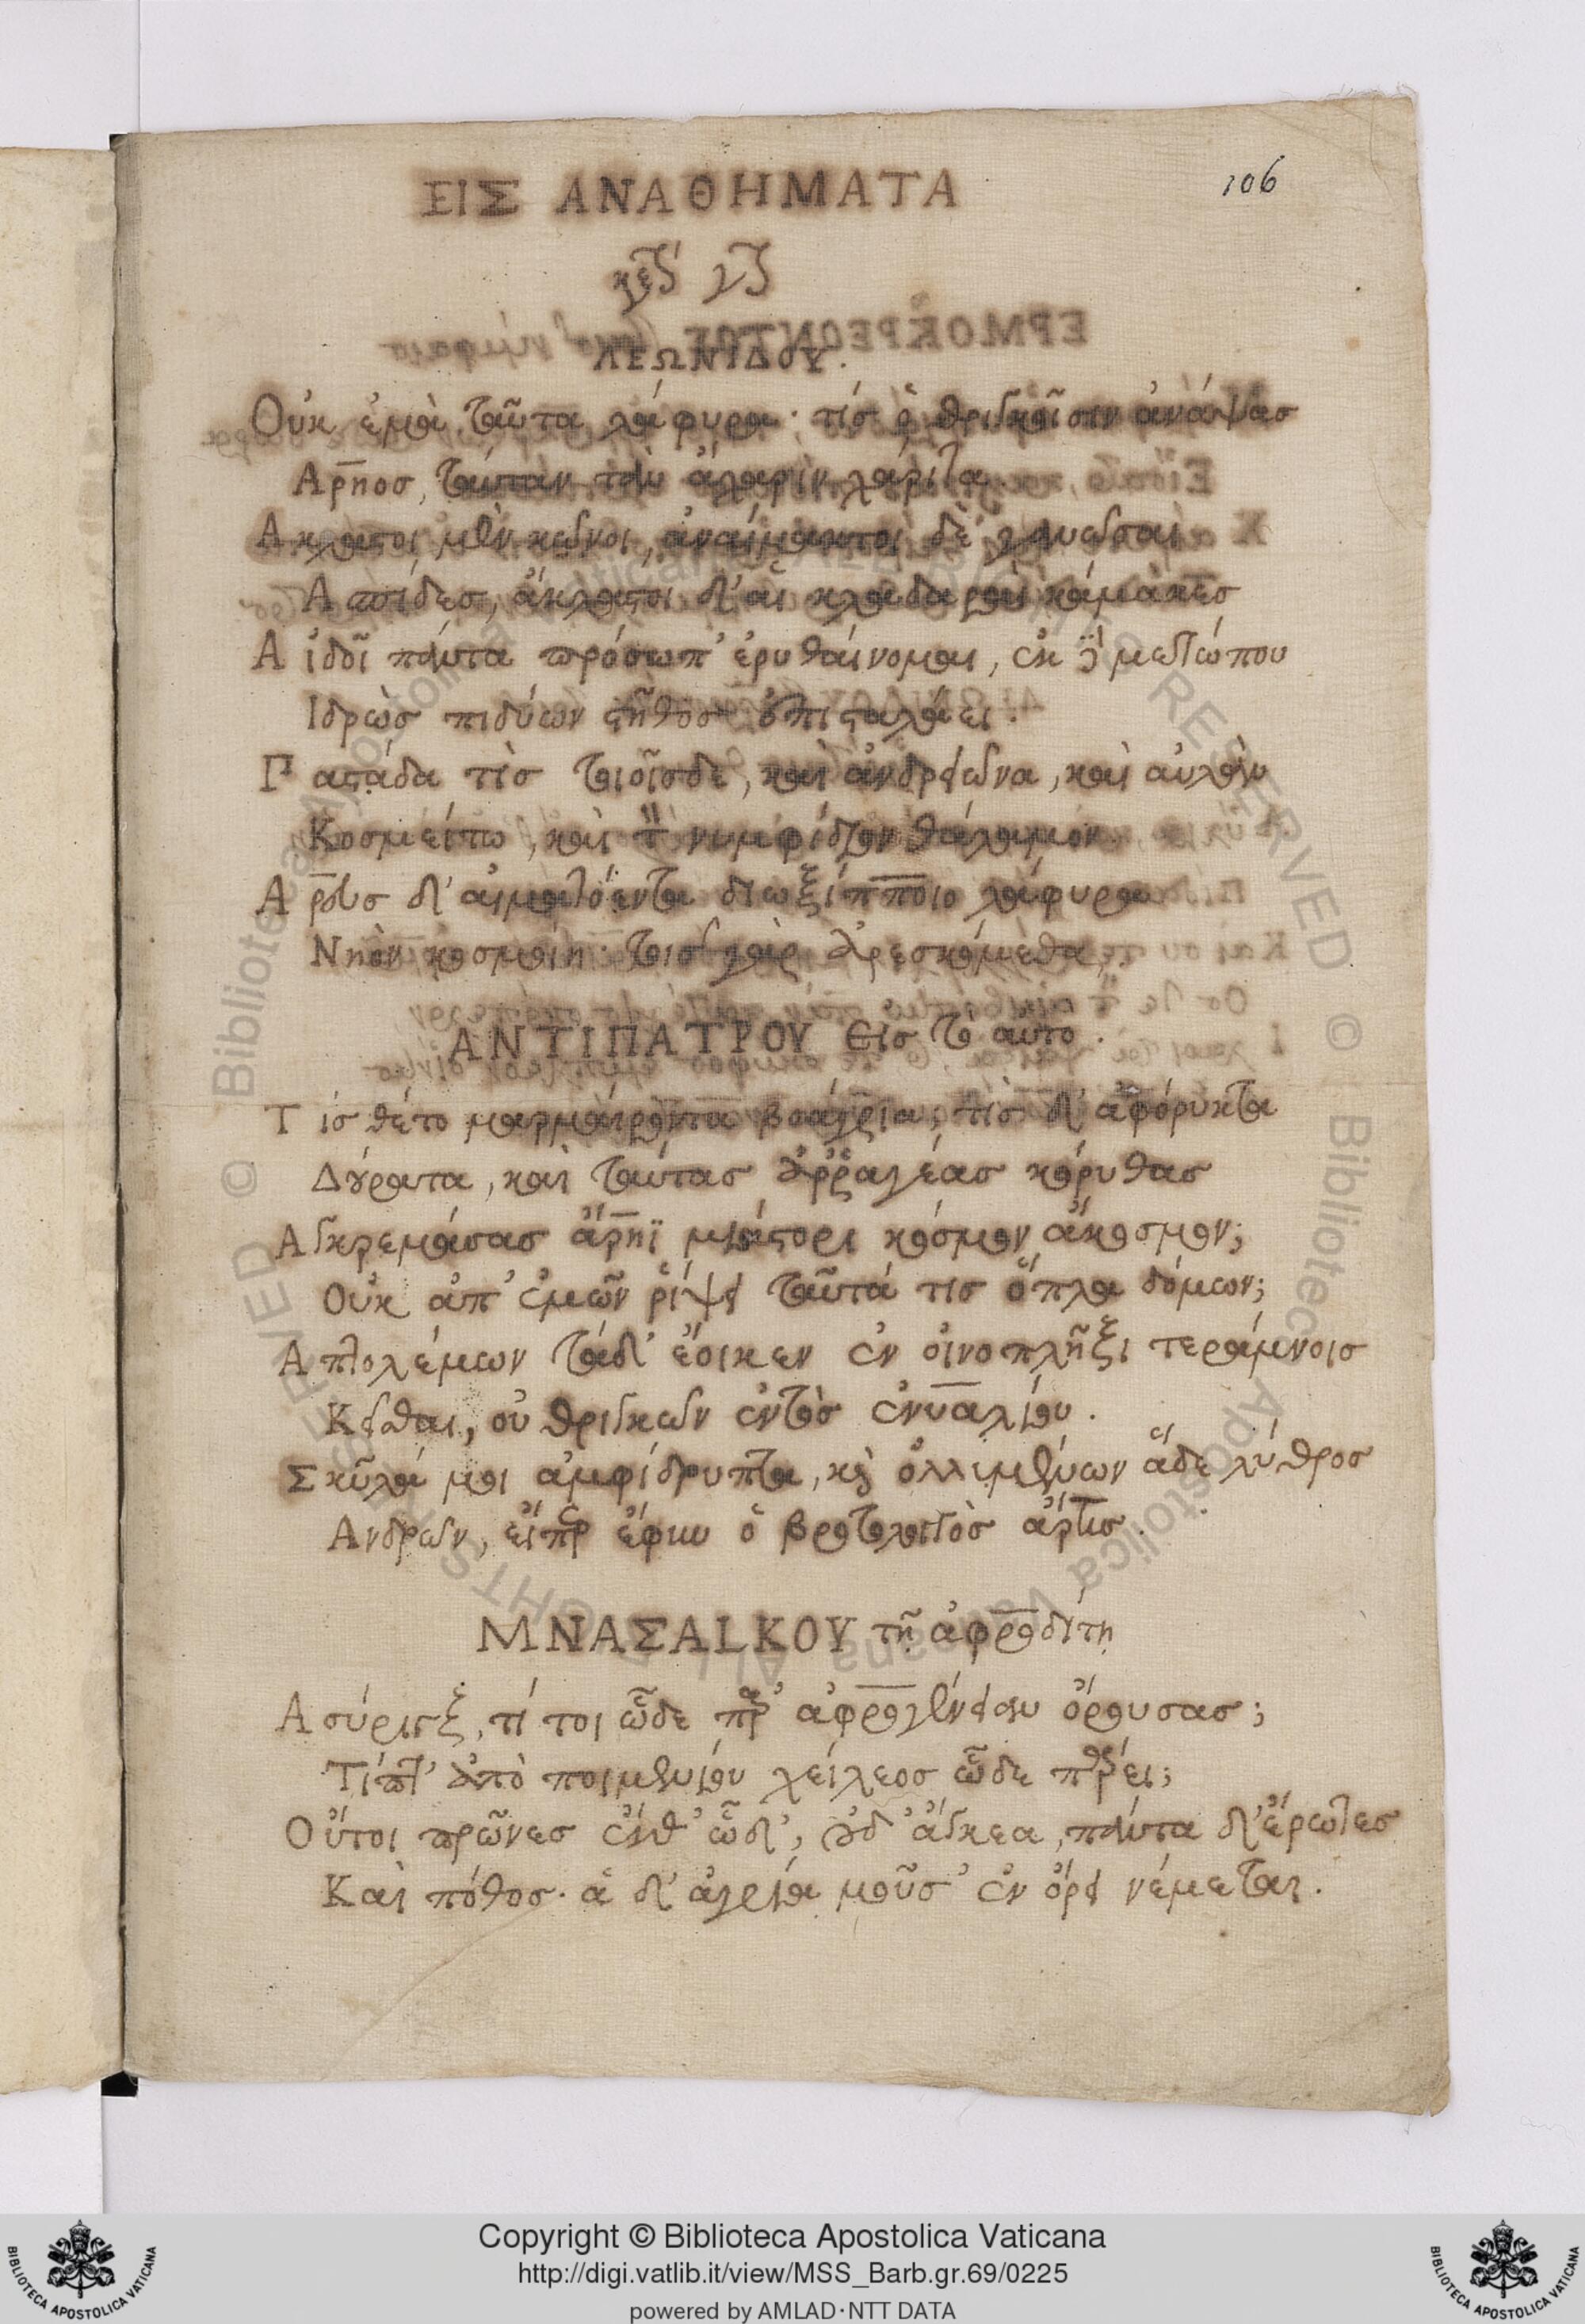 ΕΙΣ ΑΝΑΘΗΜΑΤΑ
106
ΛΕΩΝΙΔΟΥ.
Οὐκ ἐμὰ ταῦτα λάφυρα· τίς ὁ θριγκοῖσιν ἀνάψας
Αρηος, ταύταν τὰν ἄχαριν χάριτα
Ακλαστοι μὲν κῶνοι, ἀναίμακτοι δὲ γανῶσαι
Ασπίδες, ἄκλαστοι δ' αἱ κλαδαραὶ κάμακες
Αἰδοῖ πάντα πρόσωπ' ἐρυθαίνομαι, ἐκ δὲ μετώπου
Ιδρὼς πιδύων στῆθος ἐπισταλάει.
Γαστάδα τὶς τοιοῖσδε, καὶ ἀνδρειῶνα, καὶ αὐλὰν
Κοσμείτω, καὶ τὸν νυμφίδιον θάλαμον.
Αρευς δ' αἱματόεντα διωξίπποιο λάφυρα
Νηὸν κοσμοίη· τοῖς γὰρ ἀρεσκόμεθα.
ΑΝΤΙΠΑΤΡΟΥ εἰς τὸ αὐτό.
Τίς θέτο μαρμαίροντα βοάγρια, τὶς δ' ἀφόρυκτα
Δούρατα, καὶ ταύτας ἀρραγέας κόρυθας
Αγκρεμάσας ἄρηϊ μιάστορι κόσμον ἄκοσμον;
Οὐκ ἀπ' ἐμῶν ῥίψει ταῦτά τις ὅπλα δόμων;
Απτολέμων τάδ' ἔοικεν ἐν οἰνοπλῆξι τεράμνοις
Κεῖσθαι, οὐ θριγκῶν ἐντὸς ἐνυαλίου.
Σκῦλά μοι ἀμφίδρυπτα, καὶ ὀλλυμένων ἅδε λύθρος
Ανδρῶν, εἴπερ ἔφυν ὁ βροτολοιγὸς ἄρης.
ΜΝΑΣΑΛΚΟΥ τῇ ἀφροδίτῃ
Α σύριγξ, τί τοι ὧδε παρ' ἀφρογένειαν ὄρουσας;
Τίπτ' ἀπὸ ποιμενίου χείλεος ὧδε πάρει;
Οὔτοι πρῶνες ἔνθ' ὧδ', οὐδ' ἄγκεα, πάντα δ' ἔρωτες
Καὶ πόθος· ἁ δ' ἀγρία μοῦσ' ἐν ὄρει νέμεται.
Copyright © Biblioteca Apostolica Vaticana
http://digi.vatlib.it/view/MSS_Barb.gr.69/0225
powered by AMLAD·NTT DATA
BIBLIOTECA APOSTOLICA VATICANA
BIBLIOTECA APOSTOLICA VATICANA